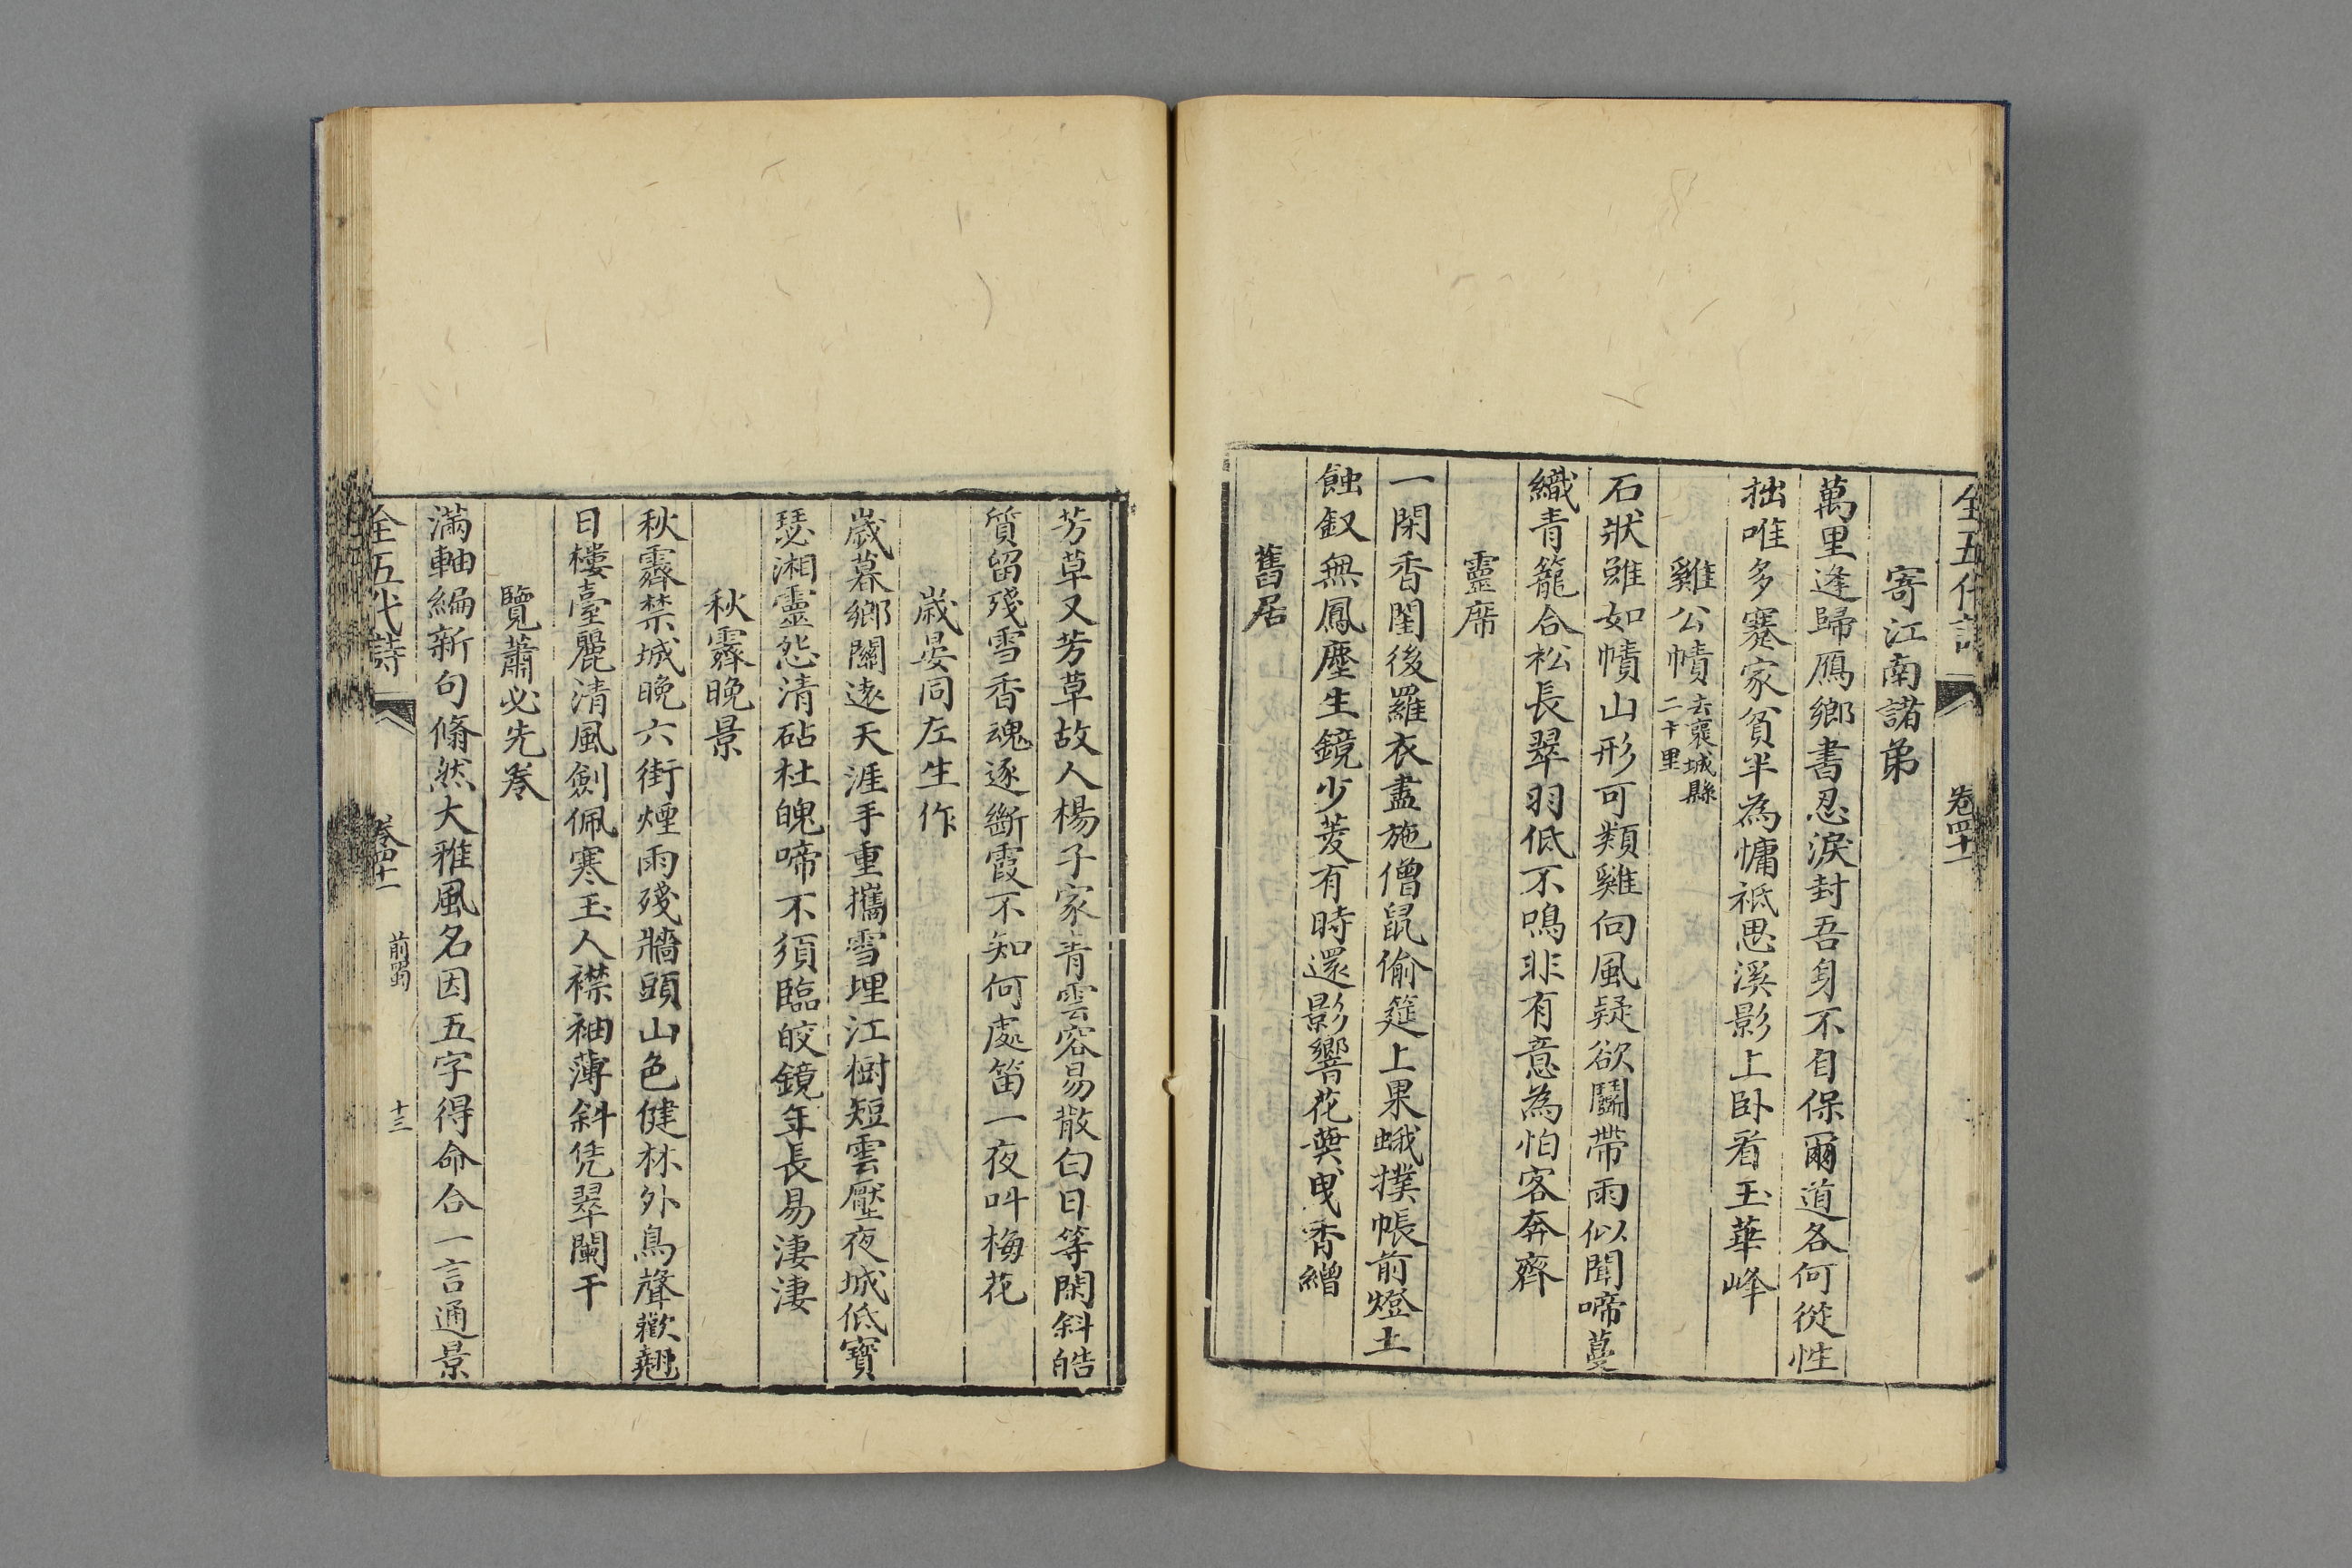 全五代詩 卷四十一
寄江南諸弟
萬里逢歸鴈鄉書忍淚封吾身不自保爾道各何從性
拙唯多蹇家貧半為慵祗思溪影上臥看玉華峰
雞公幘去襃城縣二十里
石狀雖如幘山形可類雞向風疑欲鬬帶雨似聞啼蔓
織青籠合松長翠羽低不鳴非有意為怕客奔齊
靈席
一閉香閨後羅衣盡施僧鼠偷筵上果蛾撲帳前燈土
蝕釵無鳳塵生鏡少菱有時還影響花葉曳香繒
舊居
芳草又芳草故人楊子家青雲容易散白日等閑斜皓
質留殘雪香魂逐斷霞不知何處笛一夜叫梅花
歲晏同左生作
歲暮鄉關遠天涯手重攜雪埋江樹短雲壓夜城低寶
瑟湘靈怨清砧杜魄啼不須臨皎鏡年長易淒淒
秋霽晚景
秋霽禁城晚六街煙雨殘牆頭山色健林外鳥聲歡翹
日樓臺麗清風劍佩寒玉人襟袖薄斜凭翠闌干
覽蕭必先卷
滿軸編新句翛然大雅風名因五字得命合一言通景
全五代詩 卷四十一 前蜀 十三